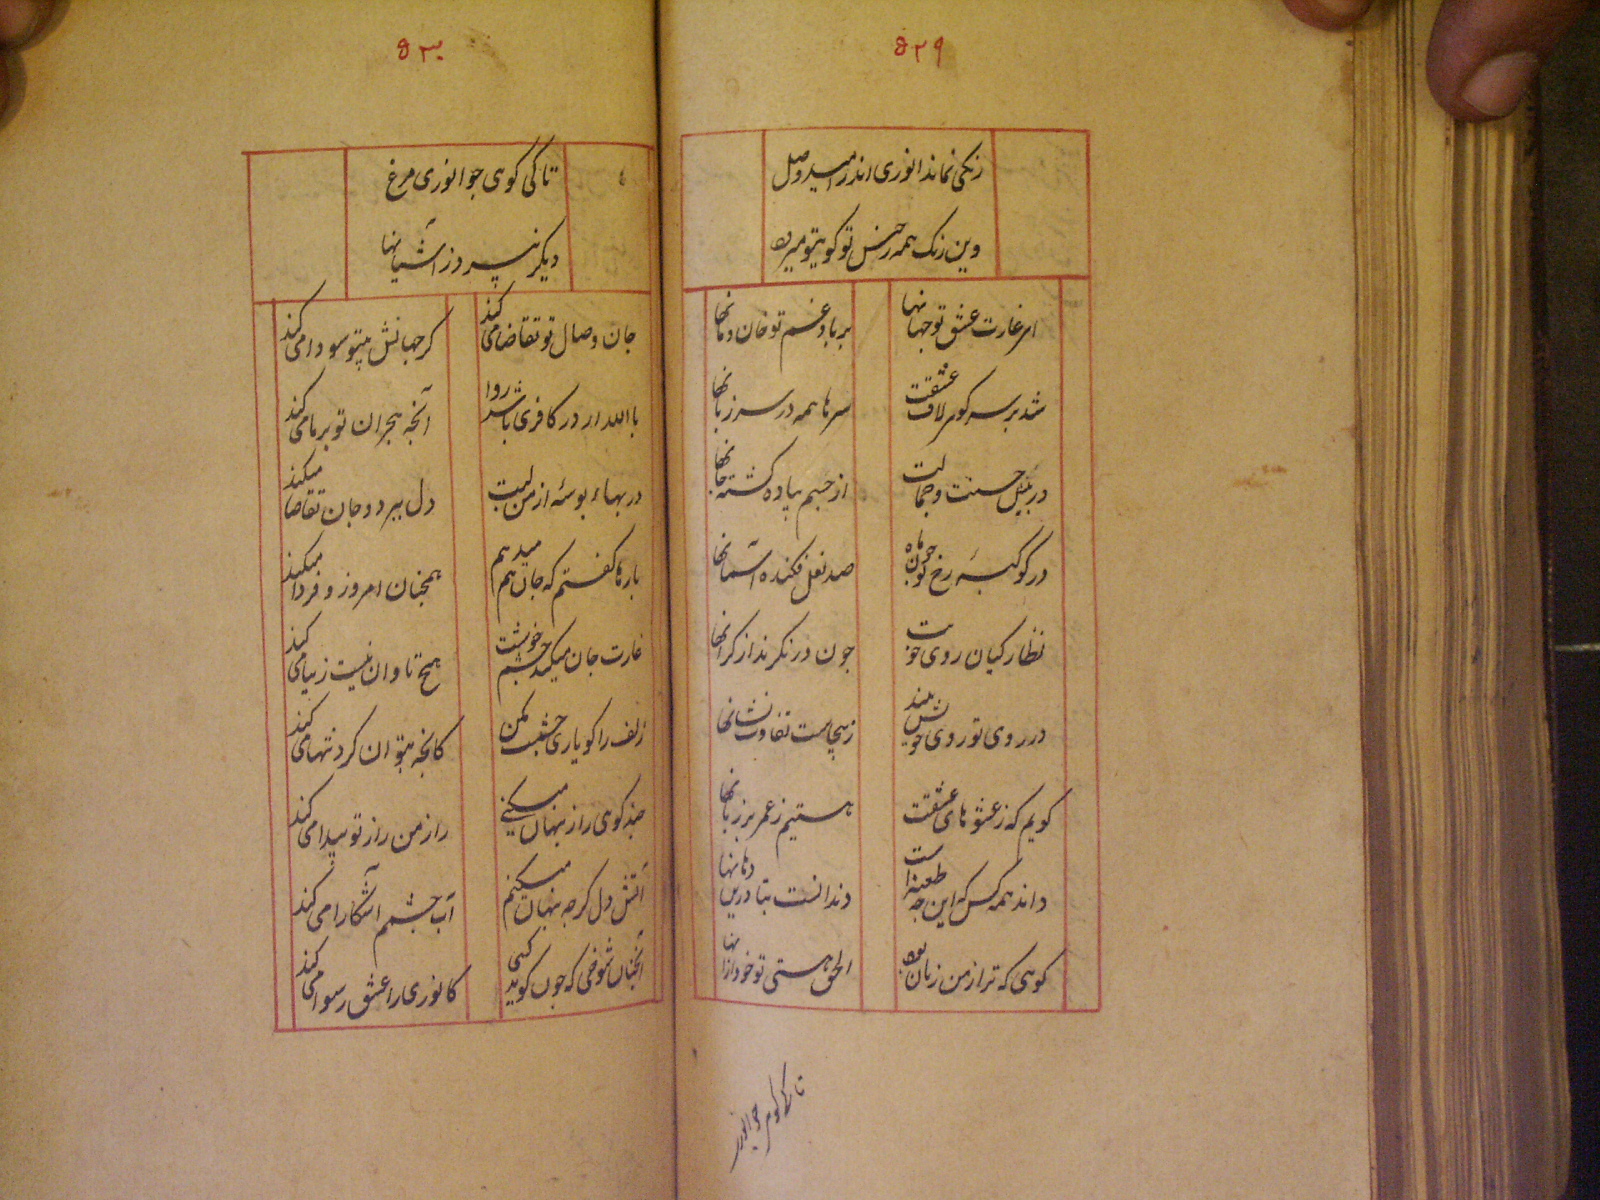 ۵۲۹
رنکی نماند انوری اندر امید وصل
وین رنک همه رخش تو کویتو میرد
ای غارت عشق تو جهانها
بر باد غم تو خان و مانها
شد بر سر کوی لاف عشقت
سرها همه در سر زبانها
در پیش جمالت
از جسم پیاده کشته جانها
در کوکبهٔ رخ چون ماه
صد نعل فکنده آسمانها
نظارکیان روی خوبت
چون در نکرند از کرانها
در روی تو روی خویش بینند
زینجاست تفاوت نشانها
کویم که ز عشوهای عشقت
هستیم ز عمر بر زیانها
داند همه کس که این چه طعنه است
دندانست بتا درین دهانها
کوی که ترا از من زیان بود
الحق هستی تو خود ازانها
تا کی کوی جو انوری
۵۳۰
تا کی کوی جو انوری مرغ
دیکر نپرد ز آشیانها
جان وصال تو تقاضا می کند
کر جهانش بیتو سودا می کند
باالله ار در کافری باشد روا
آنچه هجران تو بر ما می کند
در بهاء بوسهٔ از من لبت
دل ببرد و جان تقاضا میکند
بارها کفتم که جان هم میدهم
همچنان امروز و فردا میکند
غارت جان میکند چشم خوشت
هیچ تاوان نیست زیبا می کند
زلف را کو یاری چشمت مکن
کانچه بتوان کرد تنها می کند
چند کوی راز پنهان میکنی
راز من راز تو پیدا می کند
آتش دل کرچه پنهان میکنم
آب چشمم آشکارا می کند
آنچنان شوخی که چون کوید کسی
کانوری را عشق رسوا می کند